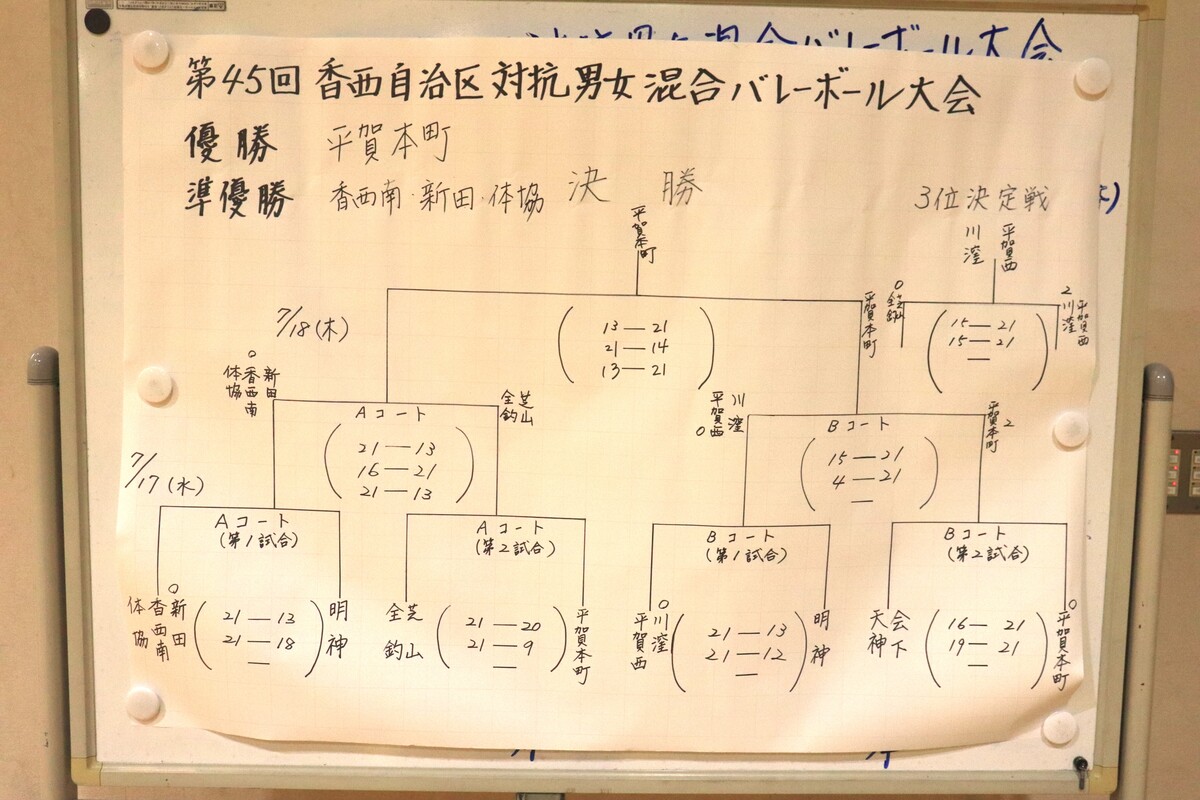 第45回 香西自治区対抗男女混合バレーボール大会
優勝 平賀本町
準優勝 香西南・新田・体協
決勝
3位決定戦
平賀本町
川窪
平賀西
7/18(木)
13—21
21—14
13—21
平賀本町
0
全芝
釣山
15—21
15—21
—
2
川窪
平賀西
0
新田
香西南
体協
Aコート
21—13
16—21
21—13
芝山
全釣
川窪
平賀西
0
Bコート
15—21
4—21
—
平賀本町
2
7/17(水)
Aコート
(第1試合)
Aコート
(第2試合)
Bコート
(第1試合)
Bコート
(第2試合)
0
新田
香西南
体協
21—13
21—18
—
明神
芝山
全釣
21—20
21—9
—
平賀本町
0
川窪
平賀西
21—13
21—12
—
明神
会下
天神
16—21
19—21
—
0
平賀本町